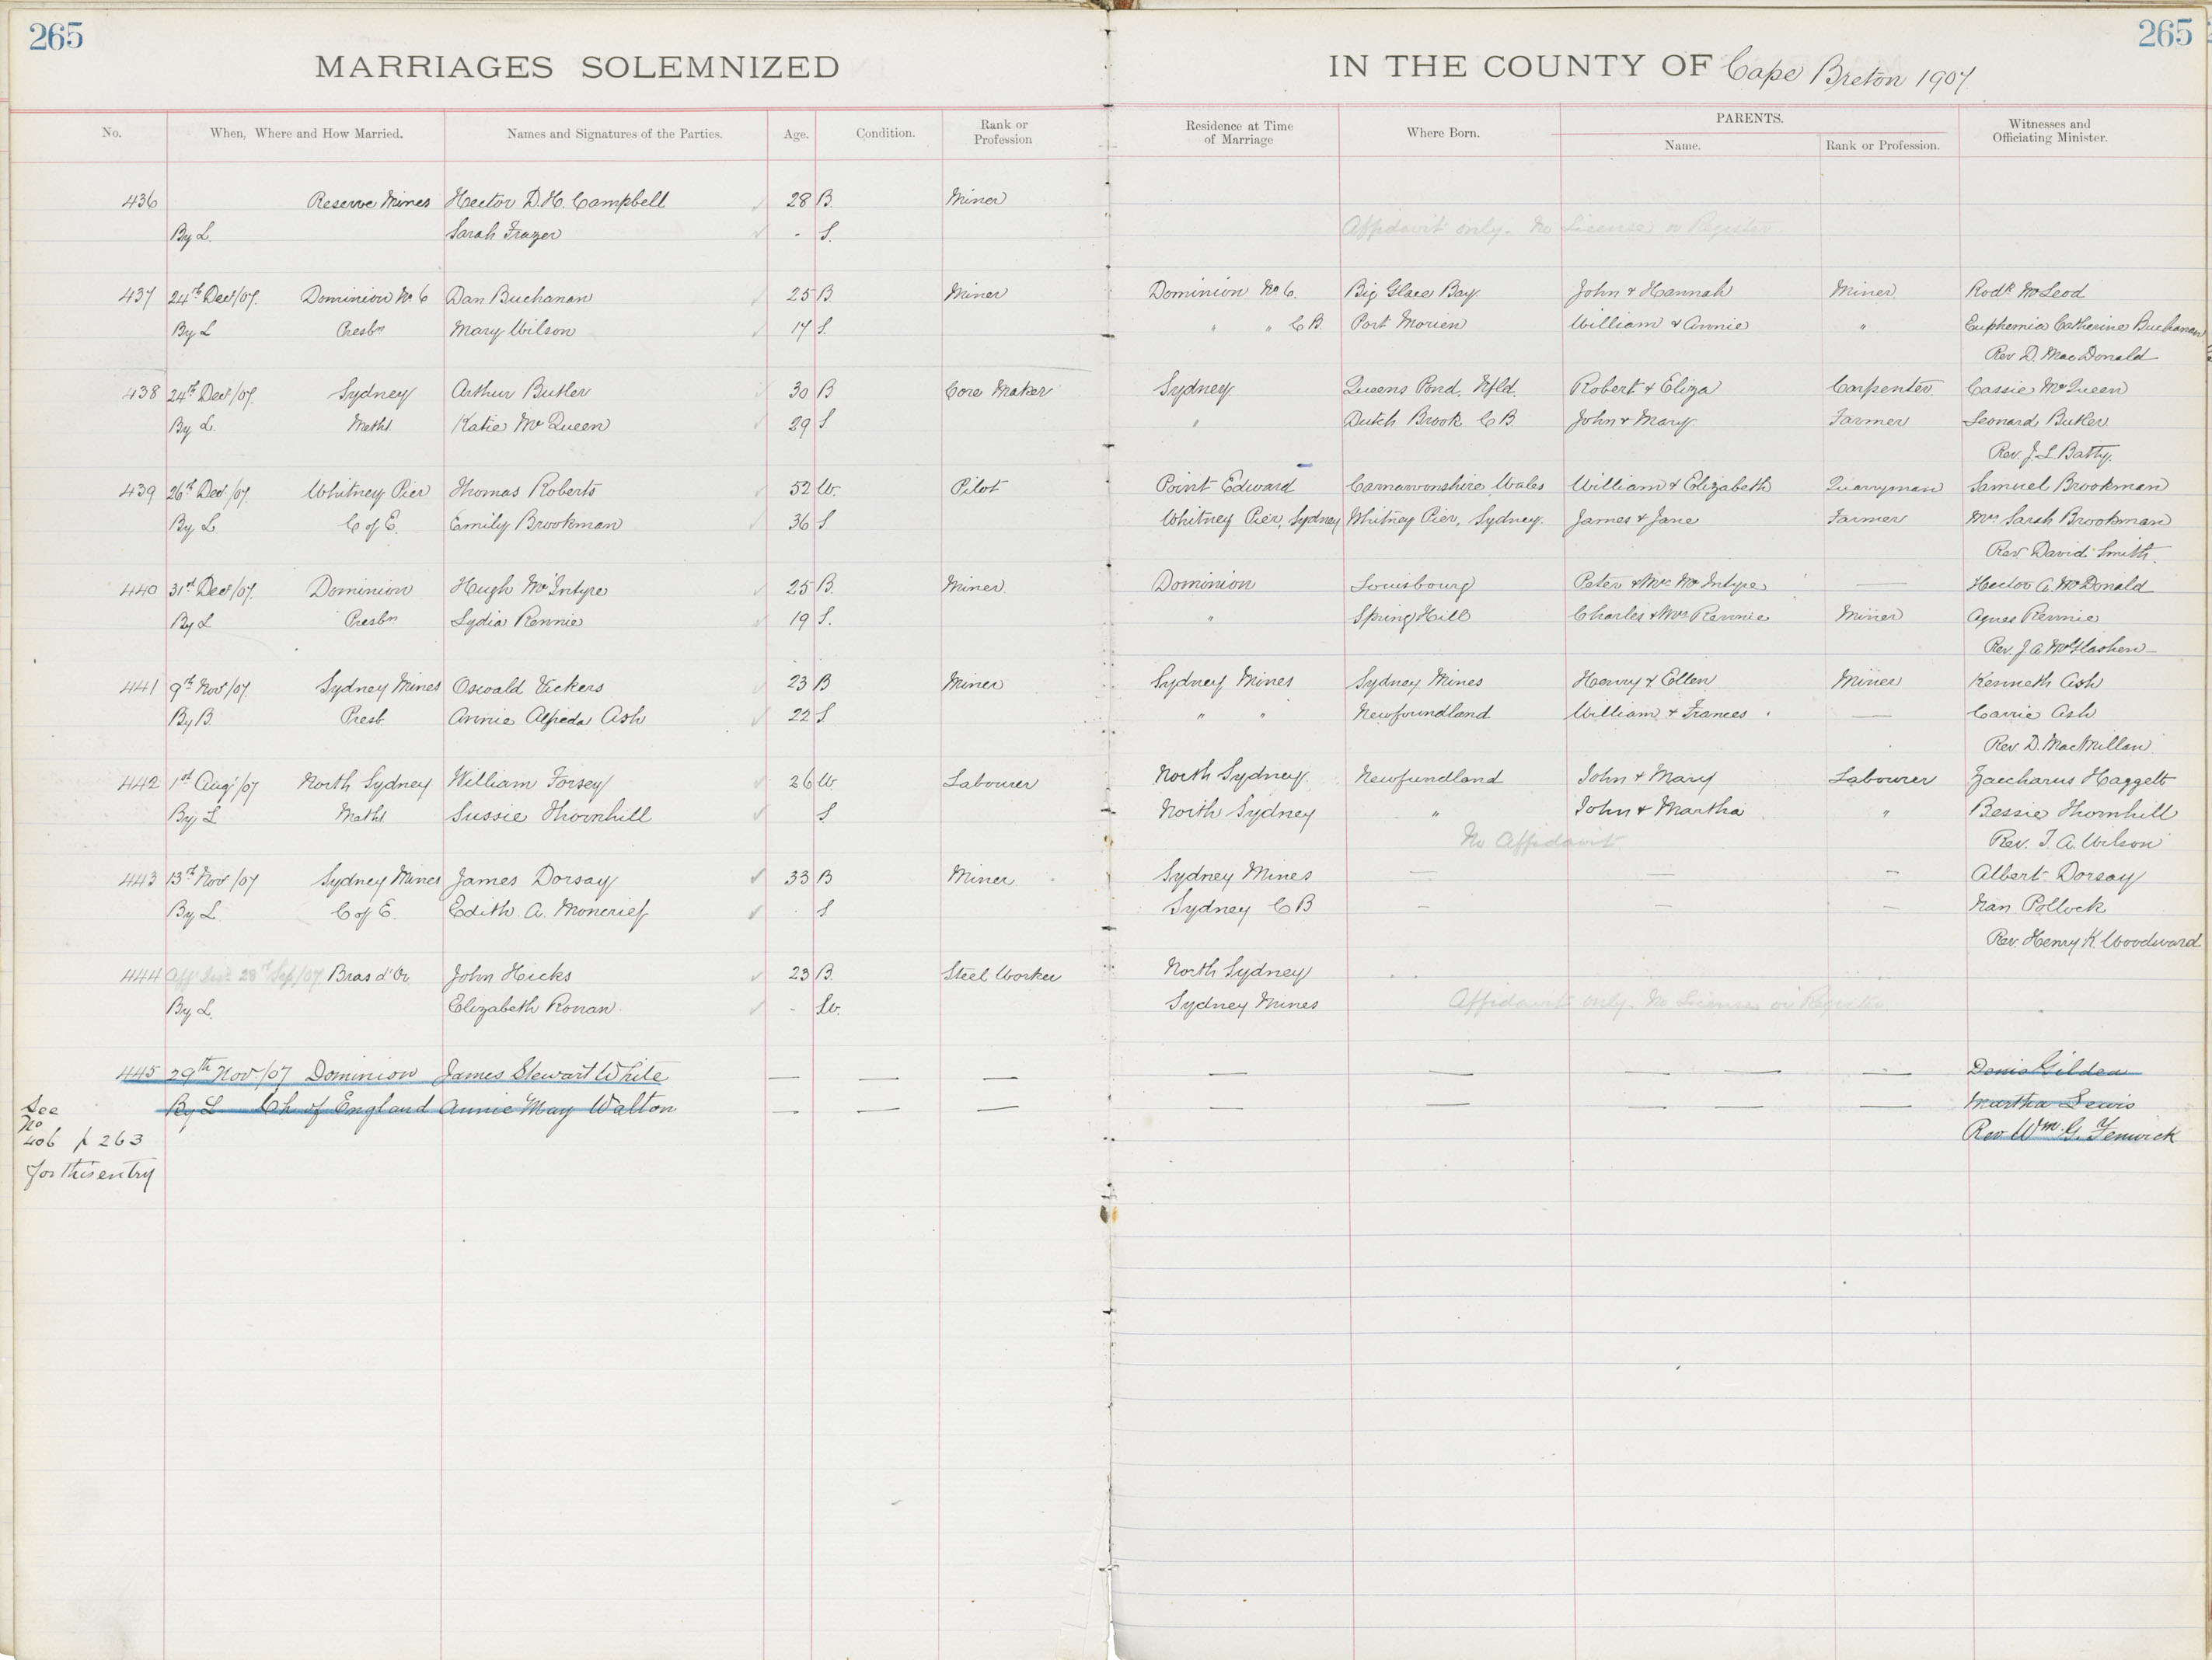 265 265
MARRIAGES SOLEMNIZED IN THE COUNTY OF Cape Breton 1907
No. When, Where and How Married. Names and Signatures of the Parties. Age. Condition. Rank or Profession Residence at Time of Marriage Where Born. PARENTS. Name. Rank or Profession. Witnesses and Officiating Minister.
436 Reserve Mines Hector D. H. Campbell 28 B. Miner
By L. Sarah Frazer - S. Affidavit only. No License or Register.
437 24th Decr/07. Dominion No 6 Dan Buchanan 25 B. Miner Dominion No 6. Big Glace Bay. John & Hannah Miner Rodk McLeod
By L Presbn Mary Wilson 17 S. " " C B. Port Morien William & Annie " Euphemia Catherine Buchanan
Rev D. MacDonald
438 24th Decr/07. Sydney Arthur Butler 30 B Core Maker Sydney. Queens Pond, Nfld. Robert & Eliza Carpenter Cassie McQueen
By L. Metht Katie McQueen 29 S. " Dutch Brook C B. John & Mary Farmer Leonard Butler
Rev. J. L. Batty.
439 26th Decr/07. Whitney Pier Thomas Roberts 52 W. Pilot Point Edward Carnarvonshire Wales William & Elizabeth Quarryman Samuel Brookman
By L C of E. Emily Brookman 36 S Whitney Pier, Sydney Whitney Pier, Sydney. James & Jane Farmer Mrs Sarah Brookman
Rev David Smith.
440 31st Decr/07. Dominion Hugh McIntyre 25 B. Miner Dominion Louisbourg Peter & Mrs McIntyre — Hector A. McDonald
By L Presbn Lydia Rennie 19 S. " Spring Hill Charles & Mrs Rennie Miner Agnes Rennie
Rev. J. A. McGlashen
441 9th Nov/07. Sydney Mines Oswald Vickers 23 B Miner Sydney Mines Sydney Mines Henry & Ellen Miner Kenneth Ash
By B. Presb. Annie Alfreda Ash 22 S " " Newfoundland William & Frances — Carrie Ash
Rev. D. MacMillan
442 1st Aug/07 North Sydney William Forsey 26 W. Labourer North Sydney Newfundland John & Mary Labourer Zaccharus Haggett
By L Metht Sussie Thornhill S North Sydney " John & Martha " Bessie Thornhill
No Affidavit Rev. T. A. Wilson
443 13th Nov/07 Sydney Mines James Dorsay 33 B Miner Sydney Mines — — — Albert Dorsay
By L. C of E. Edith A. Moncrief S Sydney C B — — — Nan Pollock
Rev. Henry K Woodward
444 28th Sep/07 Bras d'Or John Hicks 23 B. Steel Worker North Sydney
By L. Elizabeth Ronan - W. Sydney Mines Affidavit only. No License or Register
445 29th Nov./07 Dominion James Stewart White — — — — — — — — Gilden
By L Ch of England Annie May Walton — — — — — — — — Martha Lewis
Rev Wm. G. Fenwick
See
No
406 p 263
for this entry